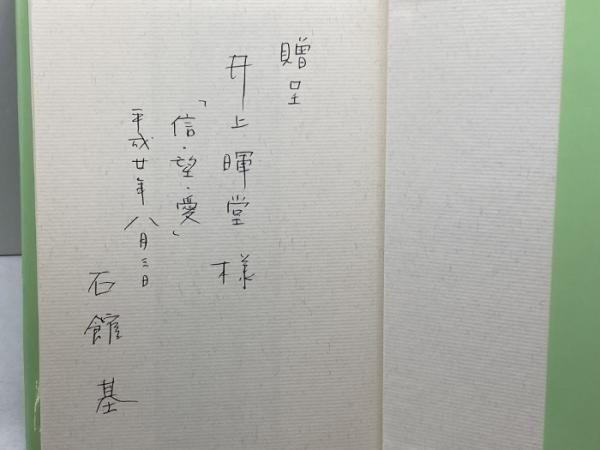 贈呈
井上暉堂様
「信・望・愛」
平成廿年八月三日
石館基